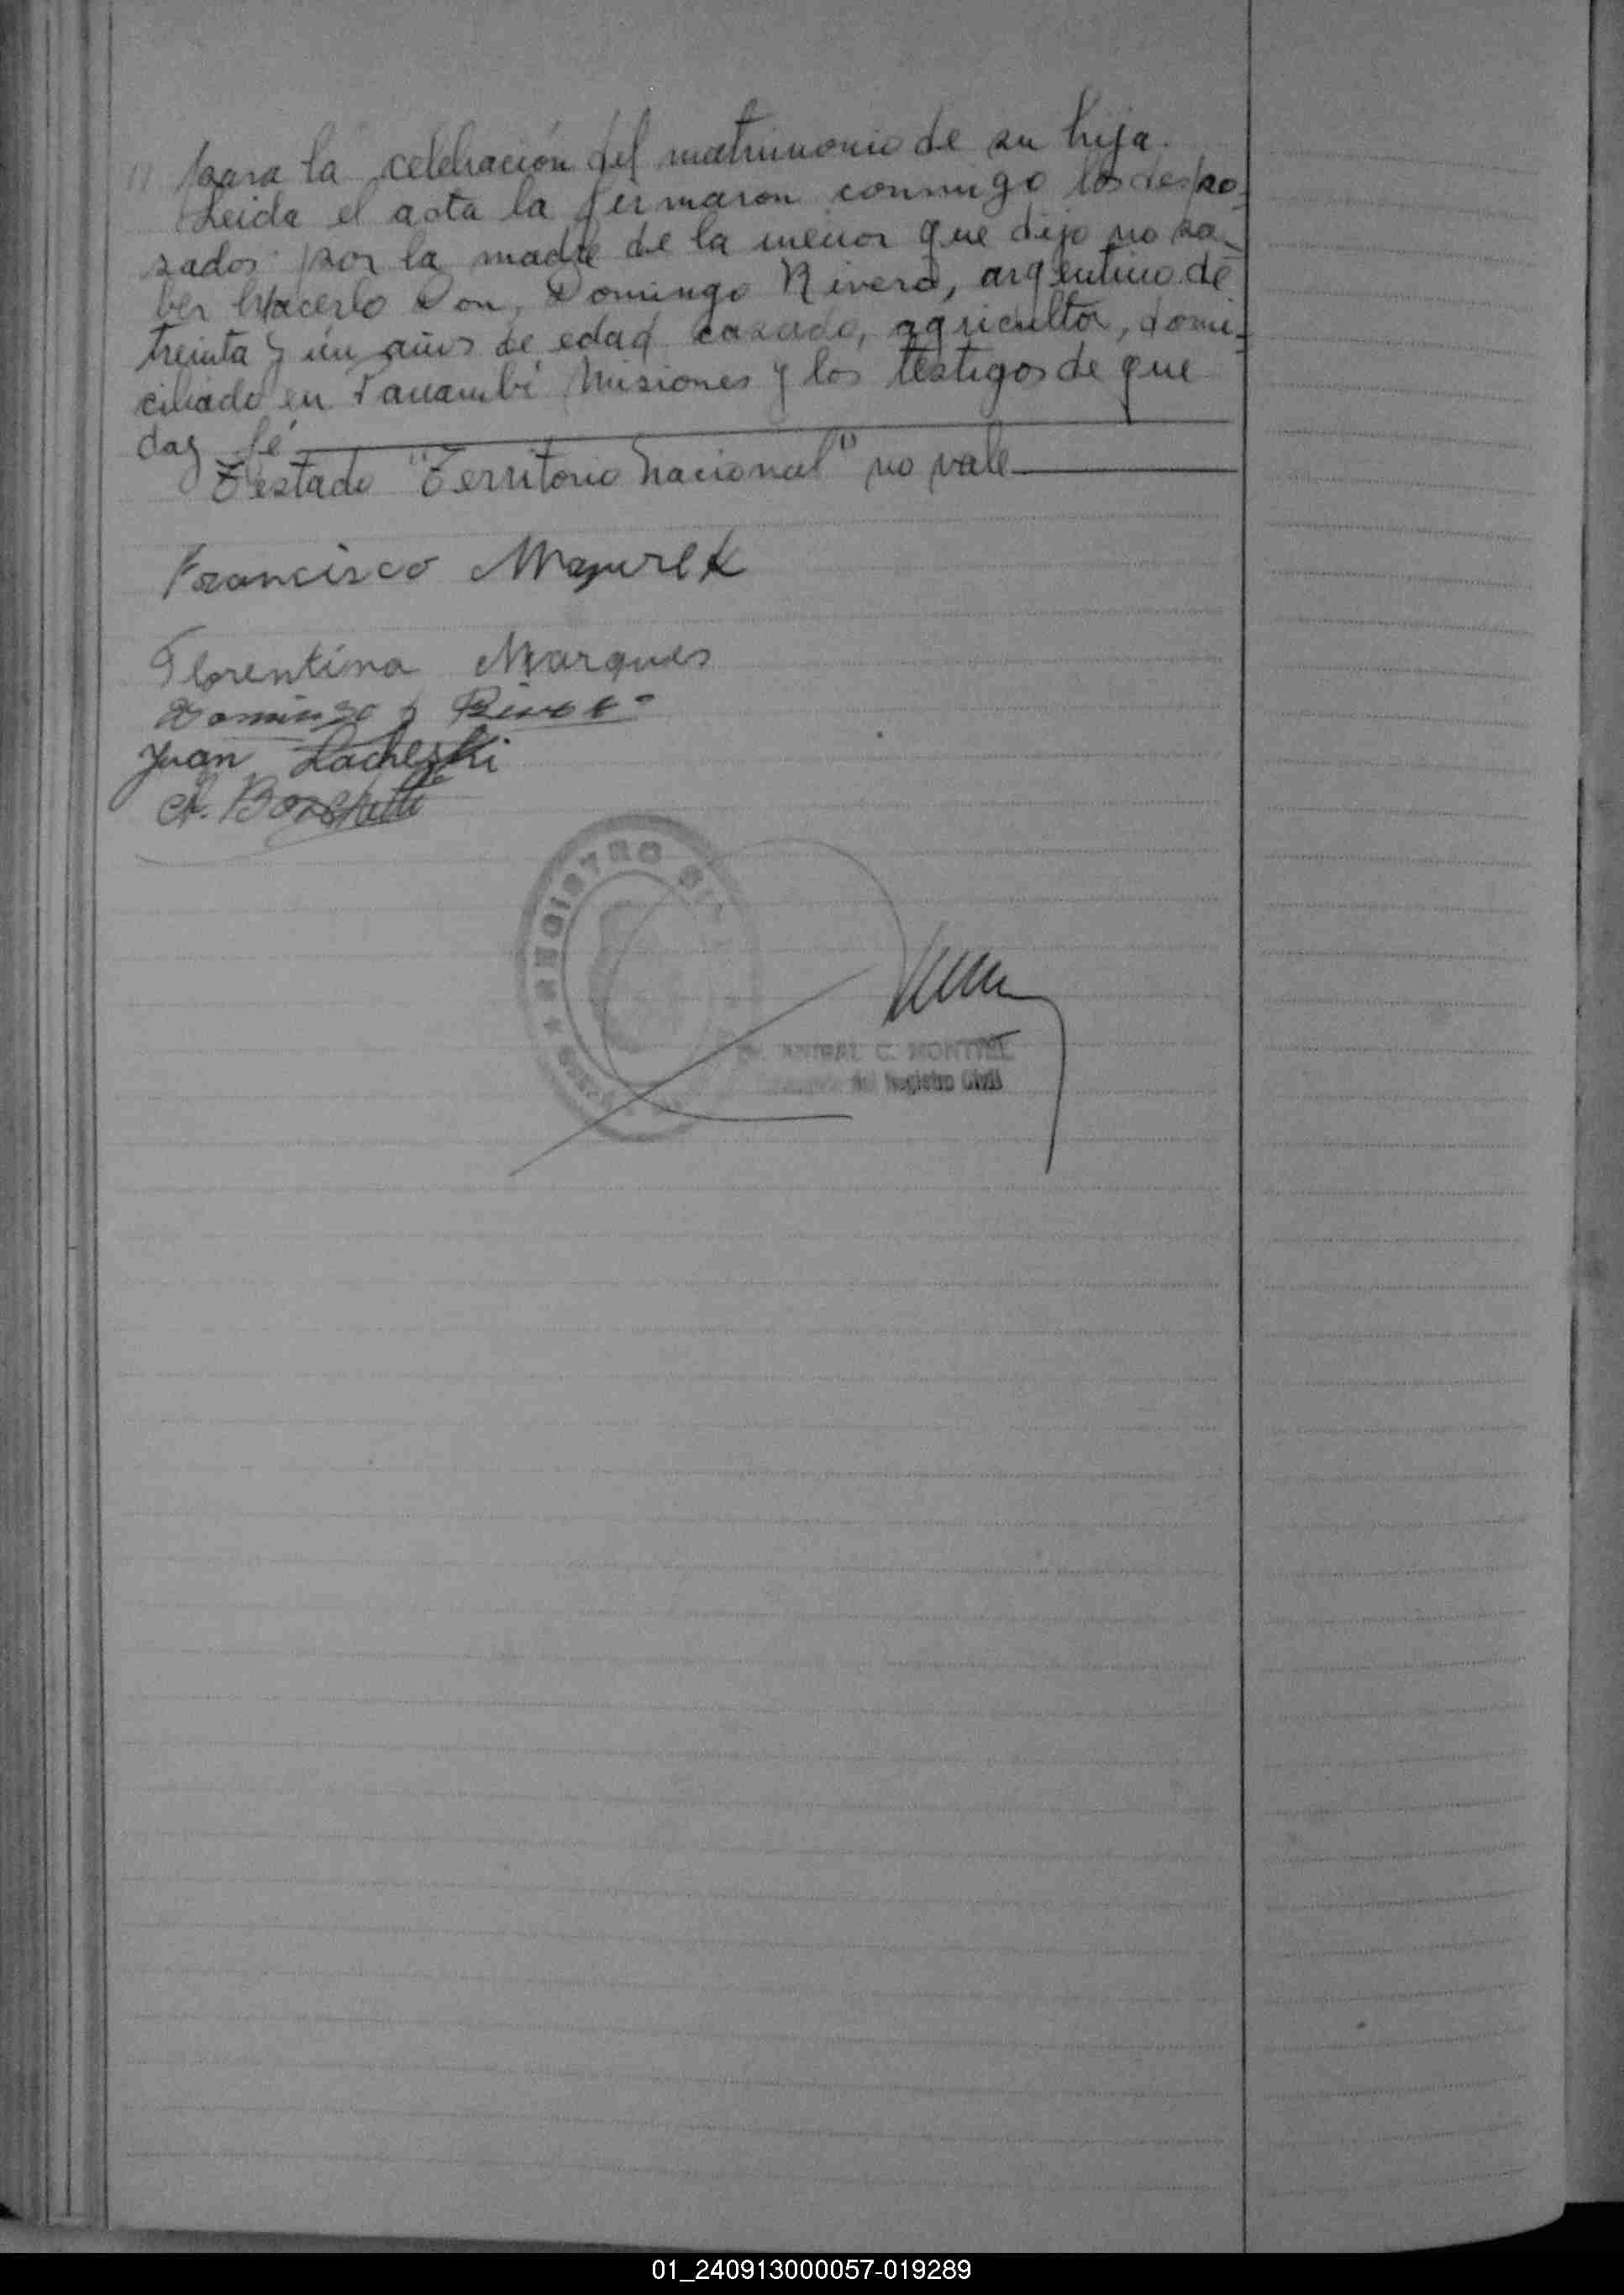 para la celebración del matrimonio de su hija.
Leida el acta la firmaron conmigo los despo-
sados por la madre de la menor que dijo no sa-
ber hacerlo Don, Domingo Rivero, argentino de
treinta y un años de edad casado, agricultor, domi-
ciliado en Panambí Misiones y los testigos de que
doy fé
Testado "Territorio Nacional" no vale
Francisco Mazurek
Florentina Marques
Domingo Rivero
Juan
A. Borchetti
REGISTRO
ANIBAL C. MONTIEL
del Registro Civil
01_240913000057-019289